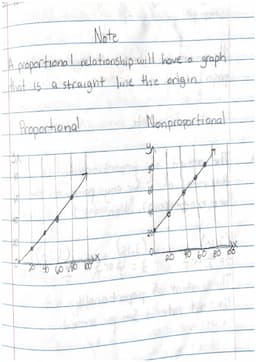 Note
A proportional relationship will have a graph
that is a straight line the origin.
Proportional Nonproportional
y y
x x
20 40 60 80 100 20 40 60 80 100